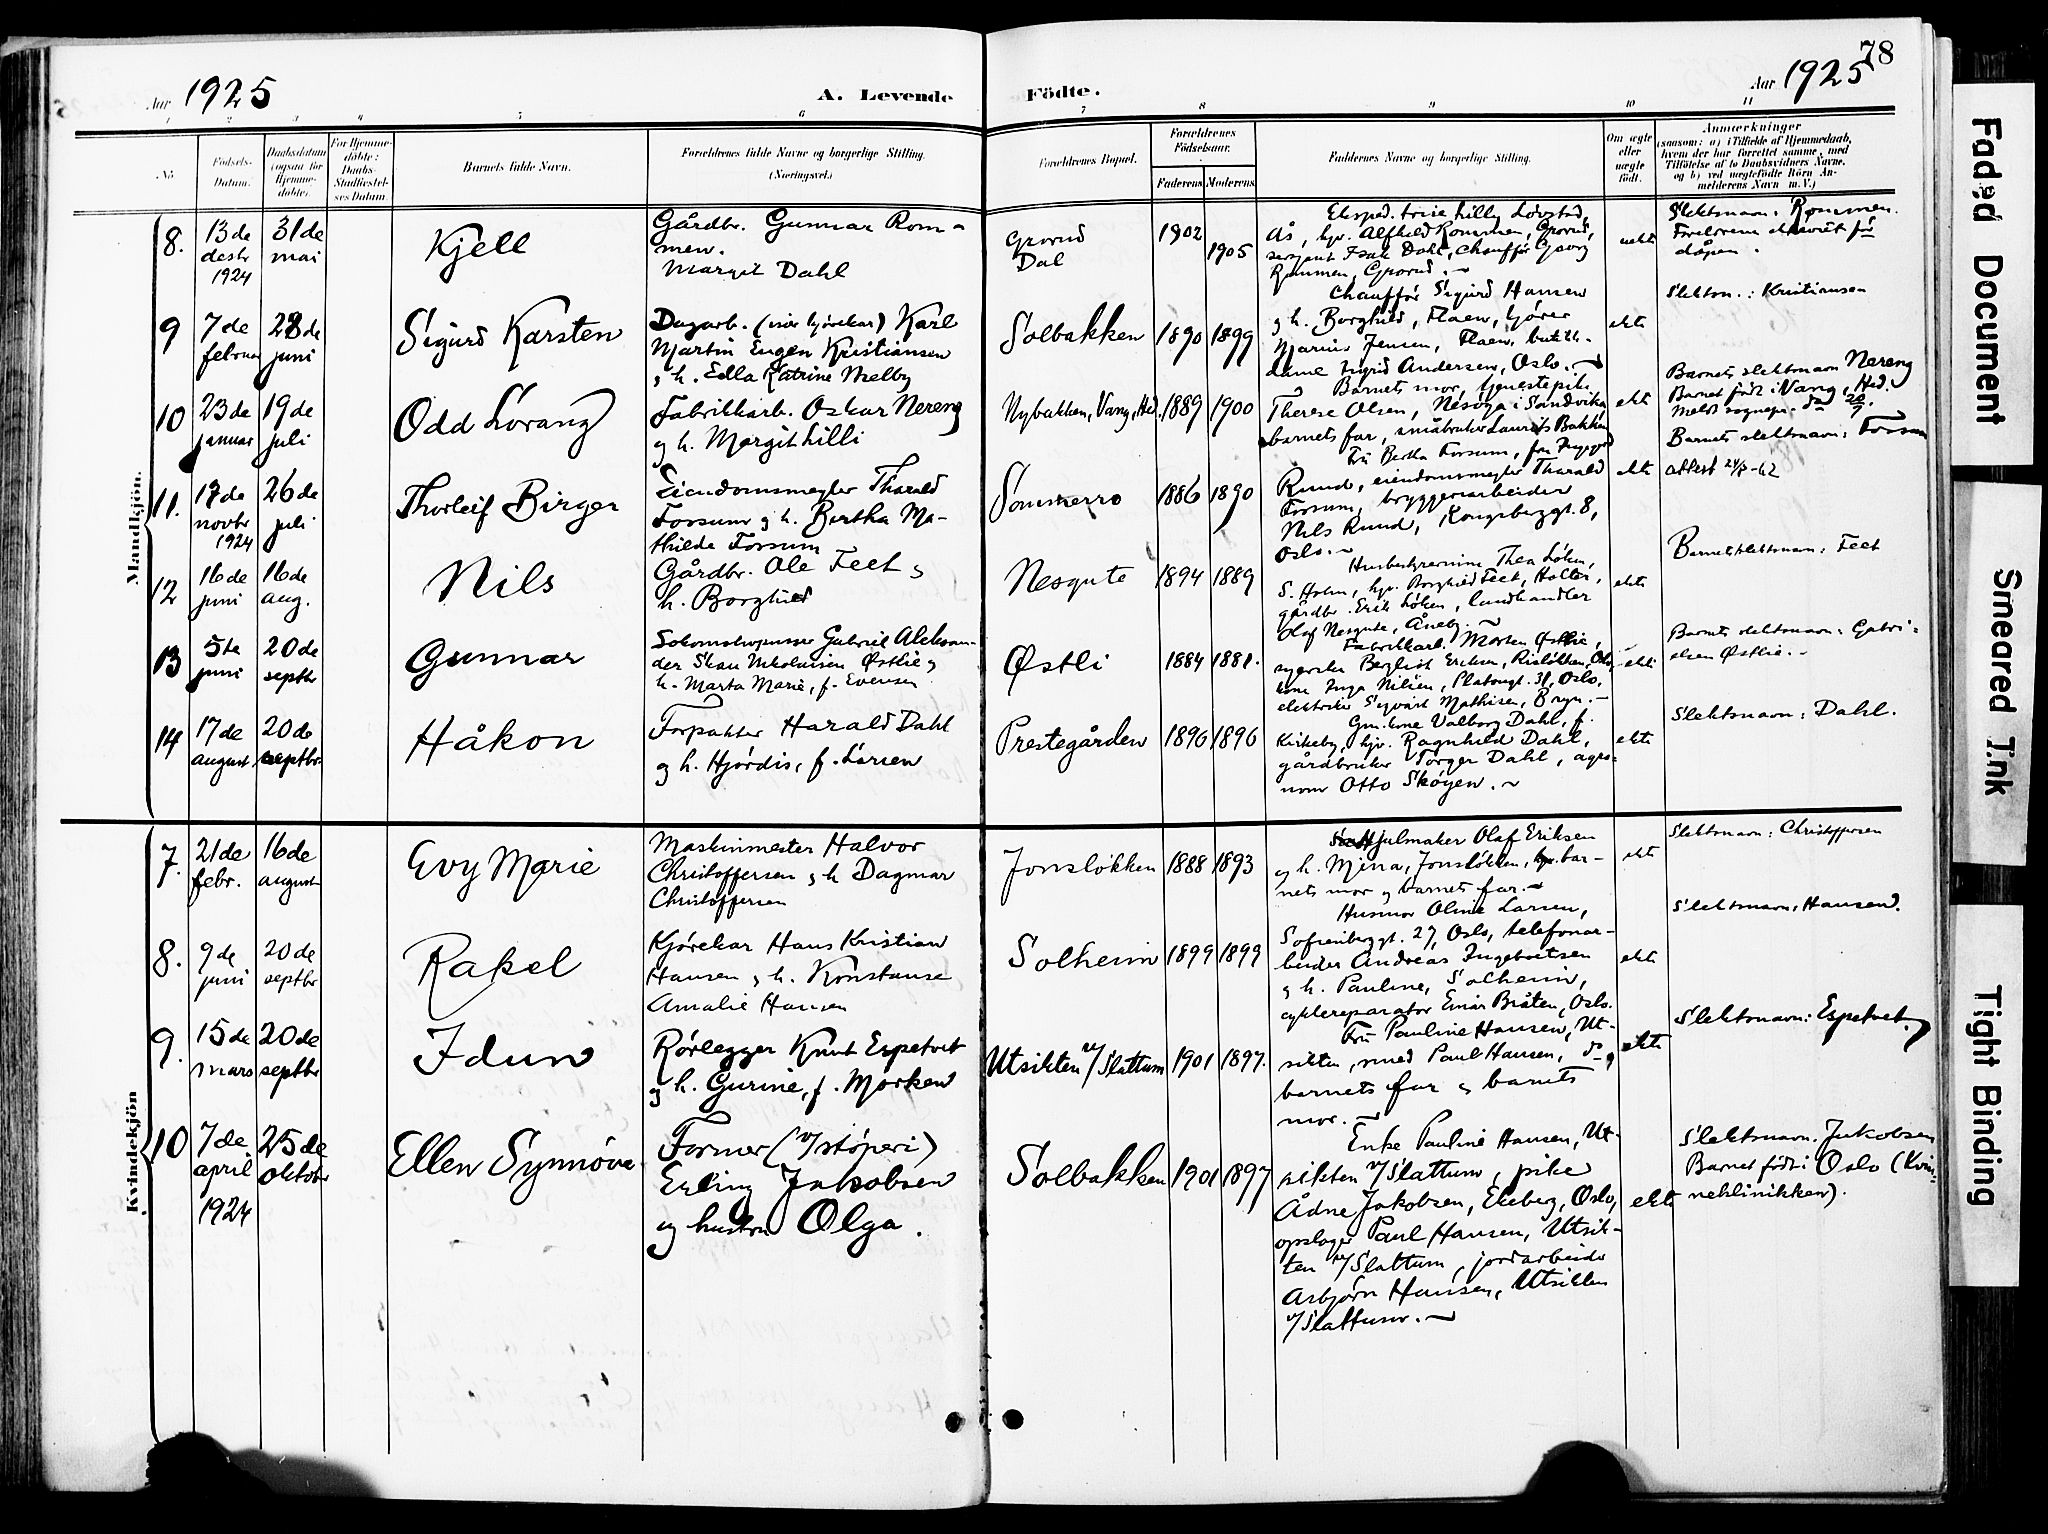 78
Aar 1925
A. Levende
Födte.
Aar 1925
1 2 3 4 5 6 7 8 9 10 11
No
Födsels-
Datum.
Daabsdatum
(ogsaa for
Hjemme-
döbte).
For Hjemme-
döbte:
Daabs-
Stadfæstel-
ses Datum.
Barnets fulde Navn.
Forældrenes fulde Navne og borgerlige Stilling.
(Næringsvei.)
Forældrenes Bopæl.
Forældrenes
Födselsaar.
Faderens
Moderens
Faddernes Navne og borgerlige Stilling.
Om ægte
eller
uægte
födt.
Anmærkninger
(saasom: a) i Tilfælde af Hjemmedaab,
hvem der har forrettet samme, med
Tilföielse af to Daabsvidners Navne,
og b) ved uægtefödte Börn An-
melderens Navn m. V.)
Mandkjön.
8.
13de
desbr
1924
31de
mai
Kjell
Gårdbr. Gunnar Rom-
men.
Margit Dahl
Grorud
Dal
1902
1905
Eksped.trise Lilly Lovstad,
Ås, hpr. Alfhild Rommen, Grorud,
sersjant Isak Dahl, Chauffør Georg
Rommen, Grorud.
uekte
Slektsnavn: Rommen.
dåpen.
9
7de
februar
28de
juni
Sigurd Karsten
Dagarb. (kjørekar) Karl
Martin Eugen Kristiansen
og h. Edla Katrine Melby
Solbakken
1890
1899
Chauffør Sigurd Hansen
og h. Borghild, Flaen, kjører
Marius Jensen, Flaen, butikk-
dame Ingrid Andersen, Oslo.
ekte
Slektsn.: Kristiansen
10
23de
januar
19de
juli
Odd Lorang
Fabrikkarb. Oskar Nereng
og h. Margit Lilli
Nybakken, Vang, Hed.
1889
1900
Barnets mor, tjenestepike
Therese Olsen, Nesøya i Sandvika,
barnets far, småbruker Laurits Bakken
ekte
Barnets slektsnavn Nereng
Barnet født i Vang, Hed.
11.
17de
novbr
1924
26de
juli
Thorleif Birger
Eiendomsmegler Tharald
Forsum og h. Bertha Ma-
thilde Forsum
Sommerro
1886
1890
Fru Bertha Forsum,
Rund, eiendomsmegler Tharald
Forsum, bryggeriarbeider
Nils Rund, Kongsberggt. 8,
Oslo.
ekte
Barnets slektsnavn: Forsum
attest 24/5-62
12
16de
juni
16de
aug.
Nils
Gårdbr. Ole Feet og
h. Borghild
Nesgute
1894
1889
Husbestyrerinne Thea Løken,
S. Holm, hpr. Borghild Feet, Holter,
gårdbr. Erik Løken, landhandler
Olaf Nesgute, Åneby.
ekte
Barnets slektsnavn: Feet
13
5te
juni
20de
septbr
Gunnar
Lokomotivpusser Gabriel Aleksan-
der Skau Nikolaisen Østlie og
h. Marta Marie, f. Evensen
Østli
1884
1881.
Fabrikkarb. Morten Østlie,
syerske Bergliot Eriksen, Risløkken, Oslo,
kone Inga Nilsen, Platougt. 31, Oslo,
elektriker Sigvart Mathisen, Bryn.
ekte
Barnets slektsnavn: Gabri-
elsen Østlie.
14
17de
august
20de
septbr
Håkon
Forpakter Harald Dahl
og h. Hjørdis, f. Larsen
Prestegården
1896
1896
Gm.kone Valborg Dahl, f.
Kirkeby, hpr. Ragnhild Dahl,
gårdbruker Torger Dahl, agro-
nom Otto Skøyen.
ekte
Slektsnavn: Dahl.
Kvindekjön
7.
21de
febr.
16de
august
Evy Marie
Maskinmester Halvor
Christoffersen og h Dagmar
Christoffersen
Jonsløkken
1888
1893
Hjulmaker Olaf Eriksen
og h. Mina, Jonsløkken, bar-
nets mor og barnets far.
ekte
Slektsnavn: Christoffersen
8.
9de
juni
20de
septbr
Rakel
Kjørekar Hans Kristian
Hansen og h. Konstanse
Amalie Hansen
Solheim
1899
1899
Husmor Oline Larsen,
Sofienberggt. 27, Oslo, telefonar-
beider Andreas Ingebretsen
og h. Pauline, Solheim,
cyklereparatør Einar Bråten, Oslo.
ekte
Slektsnavn: Hansen.
9.
15de
mars
20de
septbr
Idun
Rørlegger Knut Espetveit
og h. Gurine, f. Morken
Utsikten v/Slattum
1901
1897.
Fru Pauline Hansen, Ut-
sikten, med Paul Hansen, do og
barnets far og barnets
mor.
ekte
Slektsnavn: Espetveit
10
7de
april
1924
25de
oktober
Ellen Synnøve
Former (v/støperi)
Erling Jakobsen
og hustru Olga.
Solbakken
1901
1897
Enke Pauline Hansen, Ut-
sikten v/Slattum, pike
Ådne Jakobsen, Ekeberg, Oslo,
opslager Paul Hansen, Utsik-
ten v/Slattum, jordarbeider
Asbjørn Hansen, Utsikten
v/Slattum.
ekte
Slektsnavn. Jakobsen
Barnet født i Oslo (Kvin-
neklinikken).
Faded Document
Smeared Ink
Tight Binding